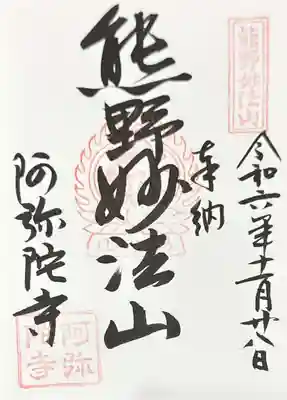 熊野妙法山
奉納
令和六年十一月廿八日
熊野妙法山
阿弥陀寺
阿弥
陀寺